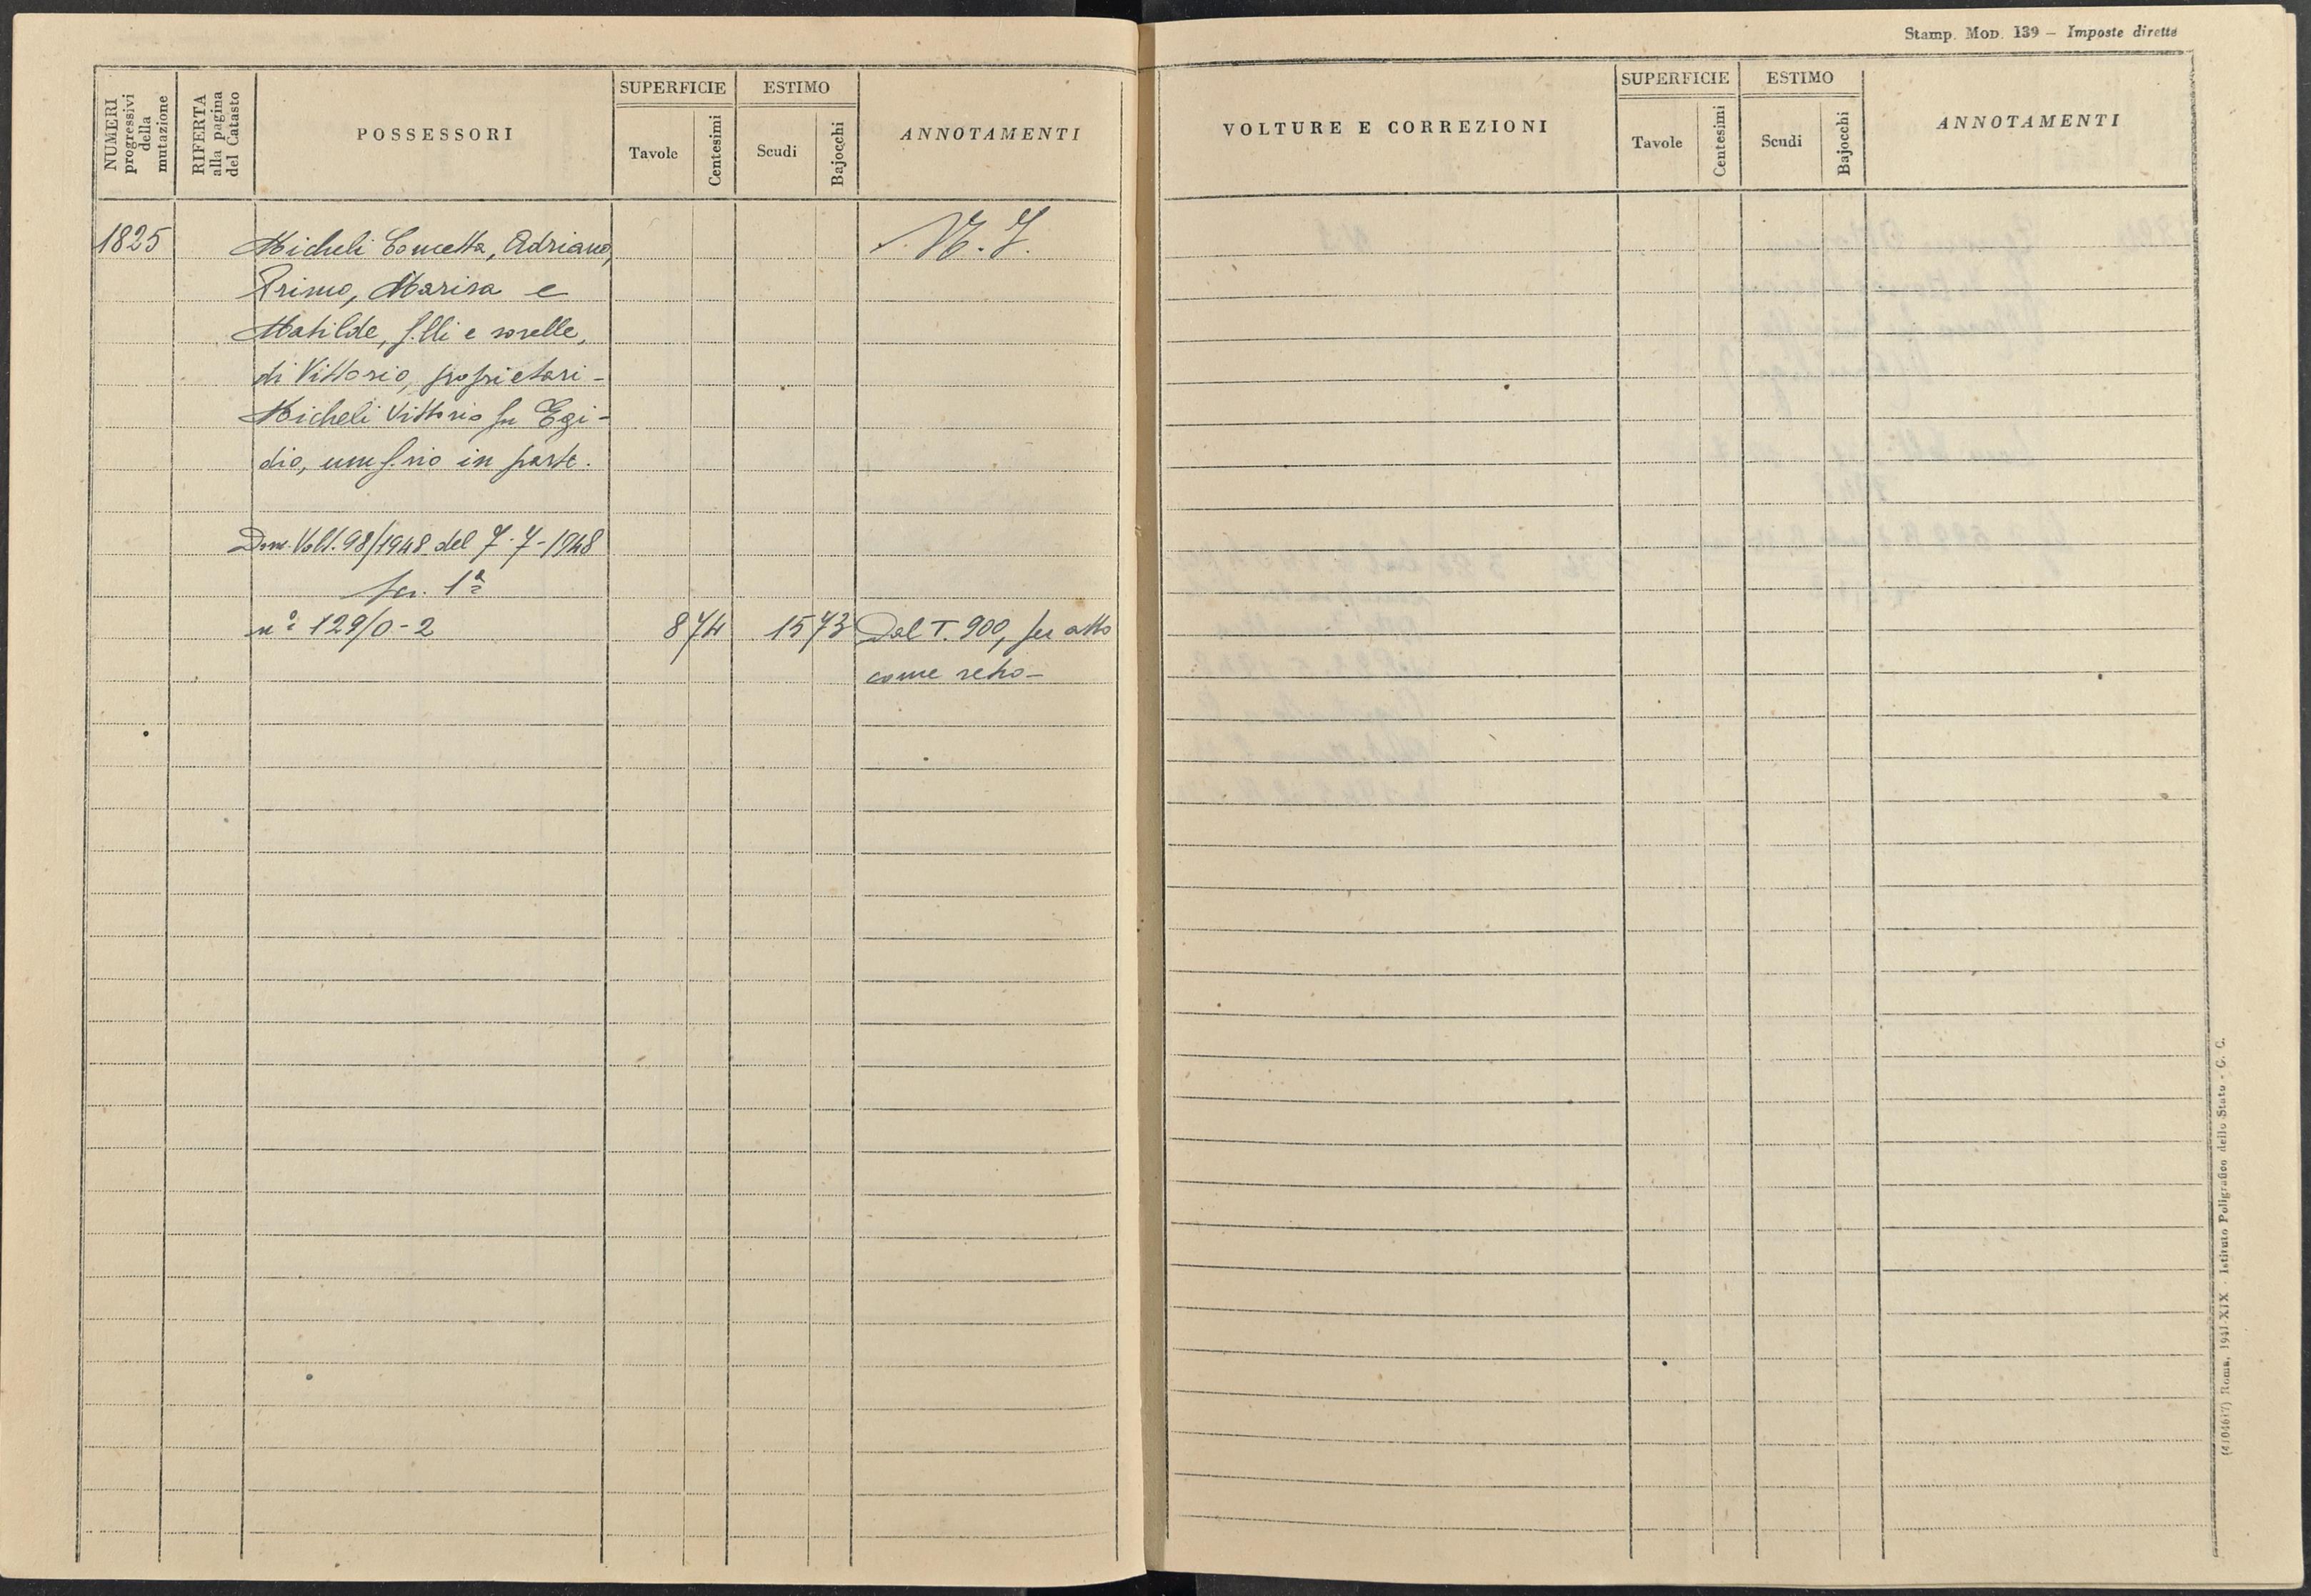 Stamp. Mod. 139 — Imposte dirette
NUMERI progressivi della mutazione
RIFERTA alla pagina del Catasto
POSSESSORI
SUPERFICIE
Tavole
Centesimi
ESTIMO
Scudi
Bajocchi
ANNOTAMENTI
VOLTURE E CORREZIONI
SUPERFICIE
Tavole
Centesimi
ESTIMO
Scudi
Bajocchi
ANNOTAMENTI
1825 Micheli Concetta, Adriano,
Primo, Marisa e
Matilde, f.lli e sorelle,
di Vittorio, proprietari -
Micheli Vittorio fu Egi-
dio, usuf.rio in parte.
Dom. Volt. 98/1948 del 7-7-1948
n° 129/0-2 8 74 15 73 Dal T. 900, per atto
come retro -
(4104617) Roma, 1941-XIX - Istituto Poligrafico dello Stato - G. C.